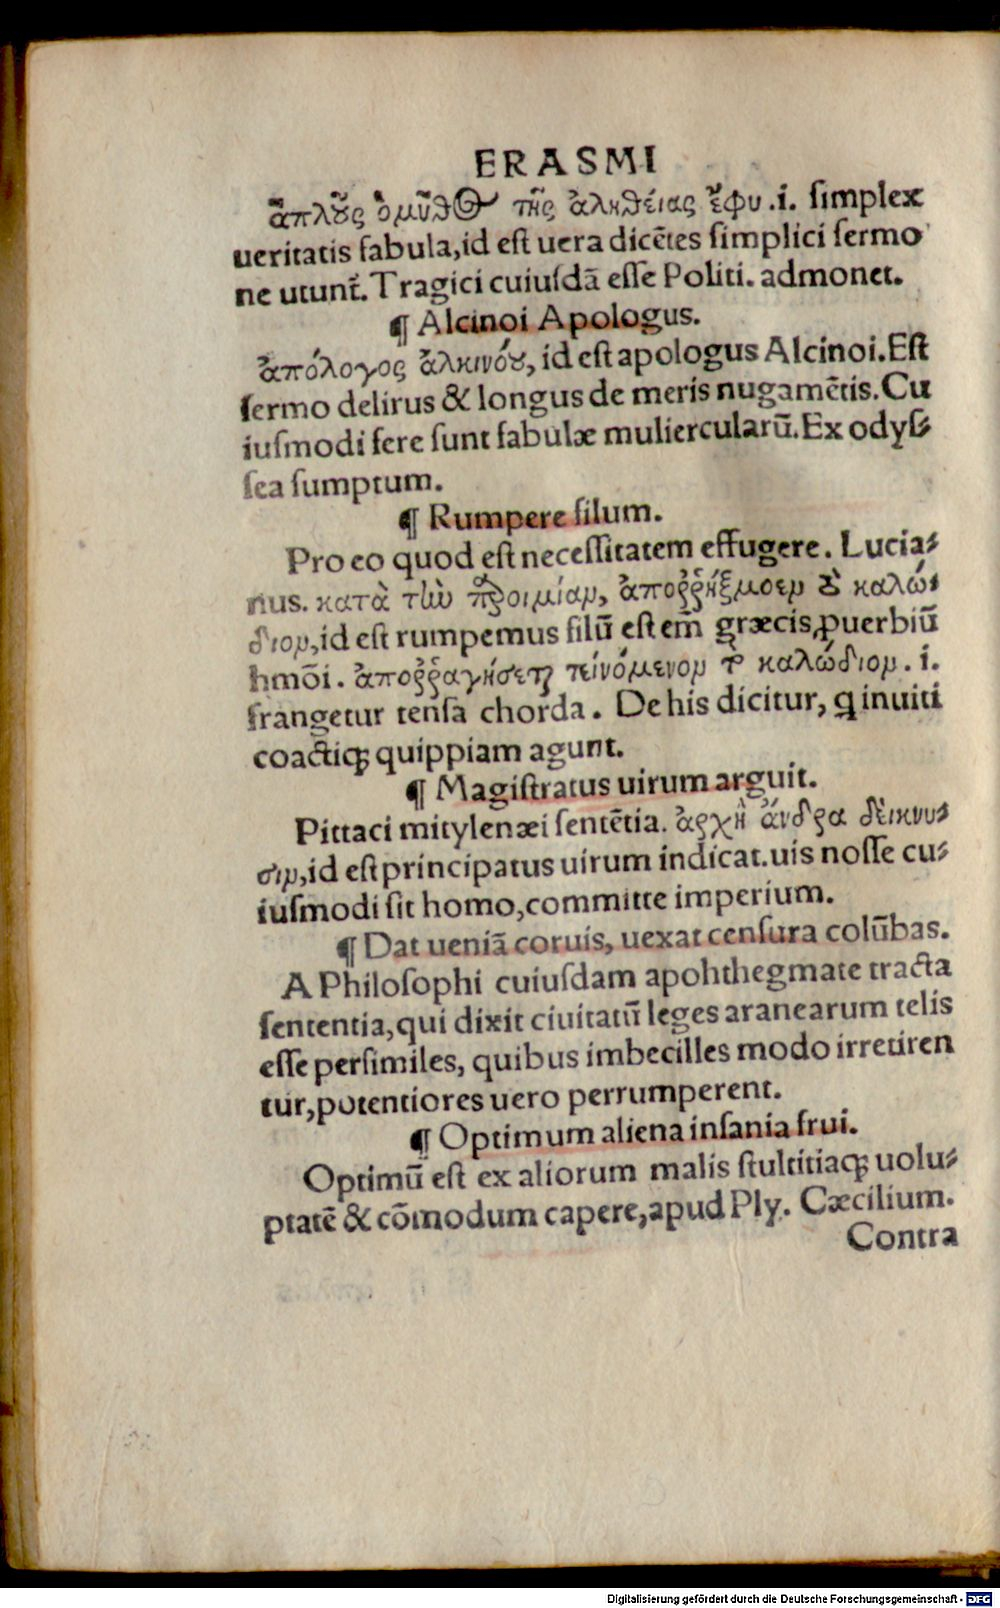 ERASMI
ἁπλοῦς ὁμῦθος τῆς ἀληθείας ἔφυ .i. simplex
ueritatis fabula,id est uera dicētes simplici sermo
ne utunt̄. Tragici cuiusdā esse Politi. admonet.
¶ Alcinoi Apologus.
ἀπόλογος ἀλκινόου, id est apologus Alcinoi.Est
sermo delirus & longus de meris nugamētis.Cu
iusmodi fere sunt fabulæ muliercularū.Ex odyſ⸗
sea sumptum.
¶ Rumpere filum.
Pro eo quod est necessitatem effugere. Lucia⸗
nus. κατὰ τὼ προιμίαμ, ἀπορρήξμοεμ ὃ καλώ⸗
διομ,id est rumpemus filū est em̄ græcis ꝓuerbiū
hmōi. ἀπορραγήσεται τείνόμενομ τὸ καλώδιομ. i.
frangetur tensa chorda. De his dicitur, q inuiti
coactiqꝫ quippiam agunt.
¶ Magistratus uirum arguit.
Pittaci mitylenæi sentētia. ἀρχὴ ἄνδρα δείκνυ⸗
σιμ,id est principatus uirum indicat.uis nosse cu⸗
iusmodi sit homo,committe imperium.
¶ Dat ueniā coruis, uexat censura colūbas.
A Philosophi cuiusdam apohthegmate tracta
sententia,qui dixit ciuitatū leges aranearum telis
esse persimiles, quibus imbecilles modo irretiren
tur,potentiores uero perrumperent.
¶ Optimum aliena insania frui.
Optimū est ex aliorum malis stultitiaqꝫ uolu⸗
ptatē & cōmodum capere,apud Ply. Cæcilium.
Contra
Digitalisierung gefördert durch die Deutsche Forschungsgemeinschaft - DFG